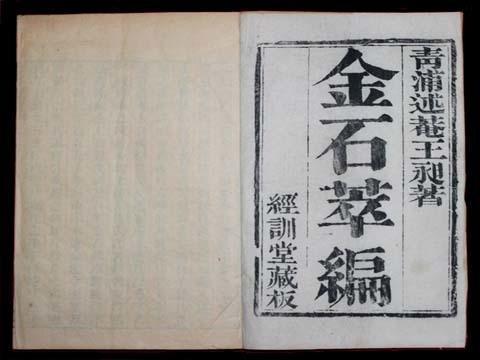 青浦述菴王昶著
金石萃編
經訓堂藏板